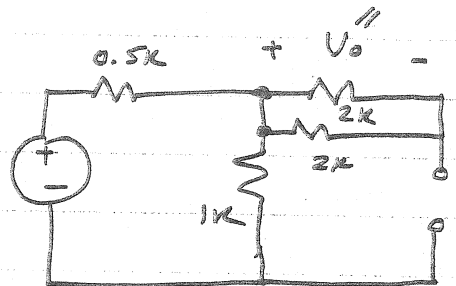 0.5K
+ Vo'' -
2K
2K
+
-
1K